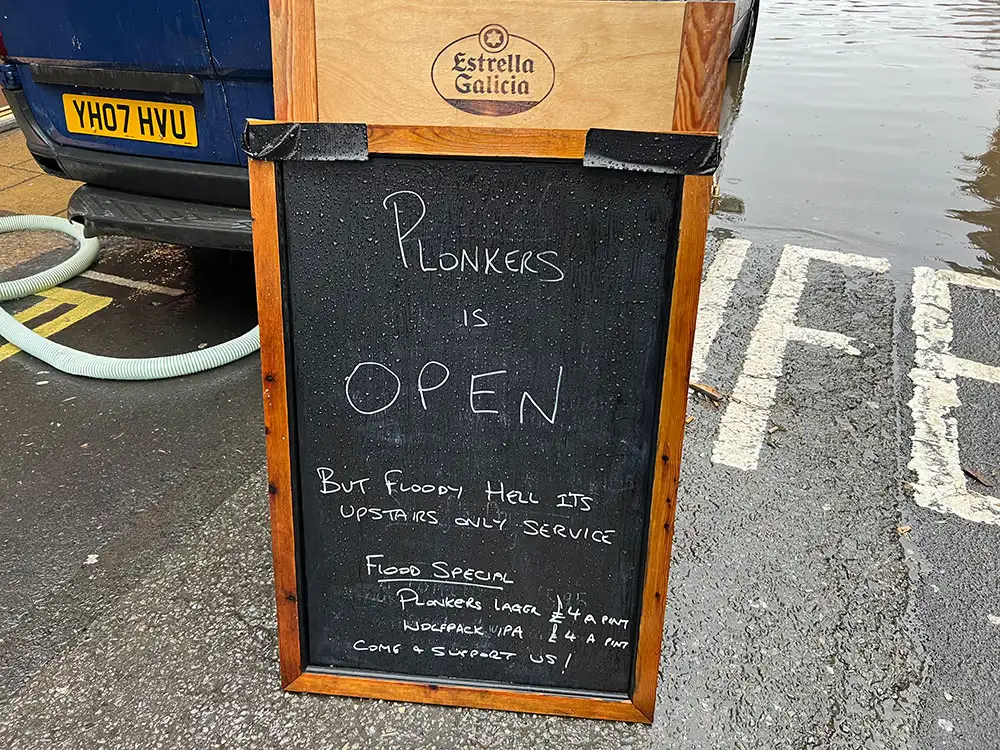 Estrella
Galicia
YH07 HVU
PLONKERS
IS
OPEN
BUT FLOODY HELL ITS
UPSTAIRS ONLY SERVICE
FLOOD SPECIAL
PLONKERS LAGER £4 A PINT
WOLFPACK IPA £4 A PINT
COME & SUPPORT US!